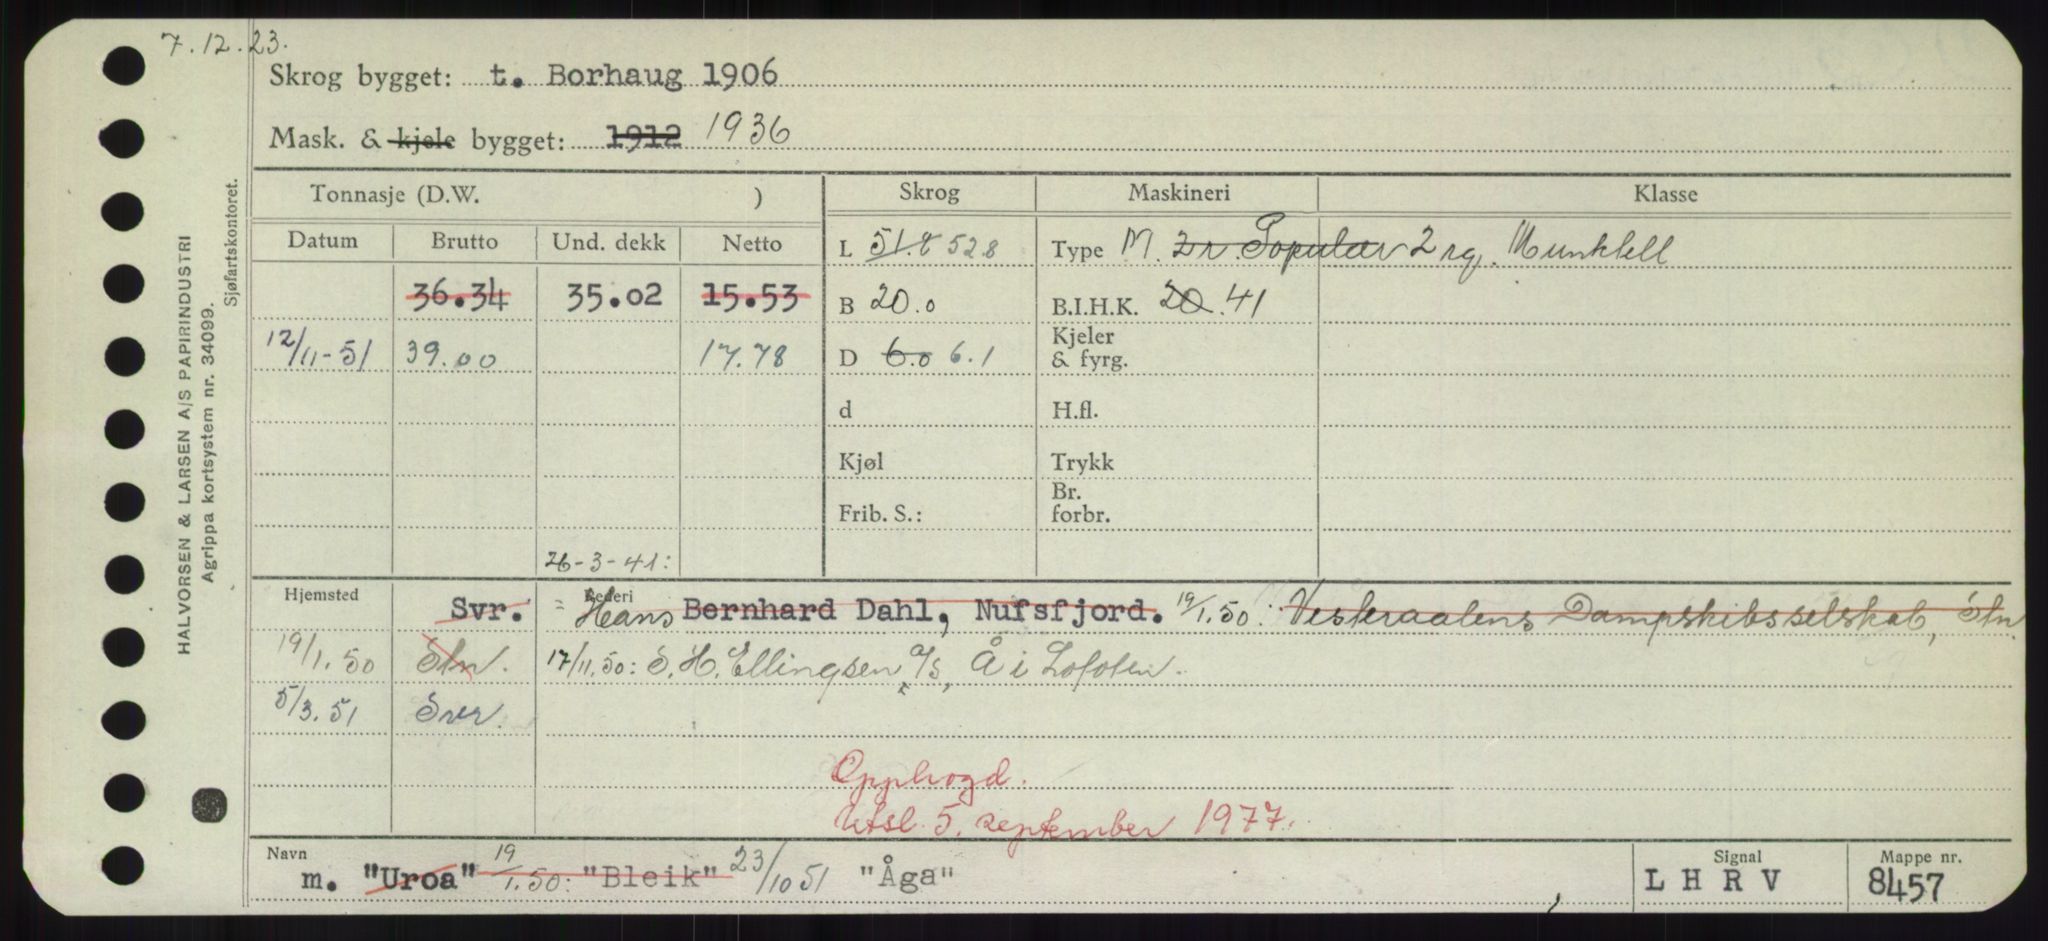 7.12.23.
Skrog bygget: t. Borhaug 1906
Mask. & kjele bygget: 1912 1936
Tonnasje (D.W. ) Skrog Maskineri Klasse
Datum Brutto Und. dekk Netto
L 51.8 52.8 Type M. 2 r. Populær 2 rg. Munktell
36.34 35.02 15.53
B 20.0 B.I.H.K. 20. 41
12/11-51 39.00 17.78
D 6.0 6.1 Kjeler
& fyrg.
d H.fl.
Kjøl Trykk
Frib. S.: Br.
forbr.
26-3-41:
Hjemsted Svr. Rederi = Hans Bernhard Dahl, Nufsfjord. 19/1.50: Vesteraalens Dampskibsselskab, Stn
19/1.50 Stn. 17/11.50: S. H. Ellingsen A/S, Å i Lofoten.
5/3.51 Svr.
Opphogd.
Utsl. 5. september 1977.
Navn m. "Uroa" 19/1.50: "Bleik" 23/10 51 "Åga"
Signal L H R V
Mappe nr. 8457
HALVORSEN & LARSEN A/S PAPIRINDUSTRI
Agrippa kortsystem nr. 34099.
Sjøfartskontoret.